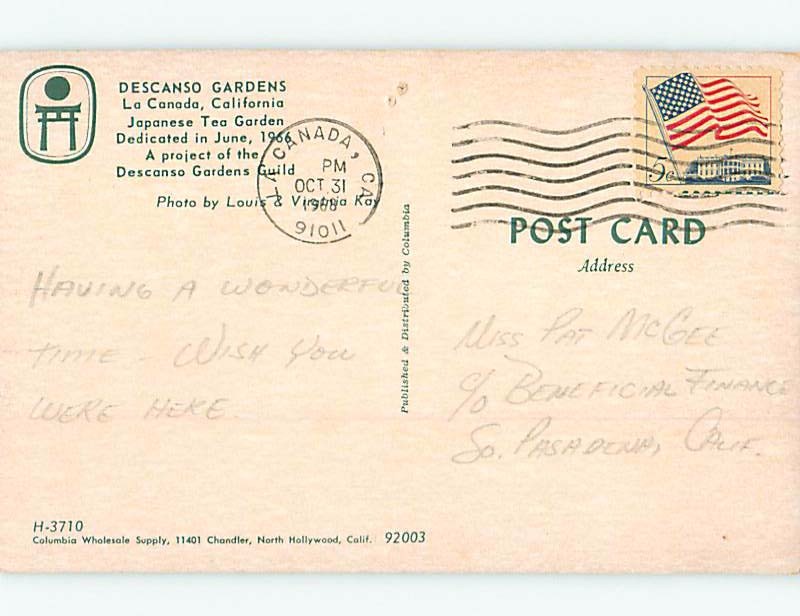 DESCANSO GARDENS
La Canada, California
Japanese Tea Garden
Dedicated in June, 1966
A project of the
Descanso Gardens Guild
Photo by Louis & Virginia Kay
LA CANADA, CA
PM
OCT 31
1968
91011
5c
POST CARD
Address
Published & Distributed by Columbia
HAVING A WONDERFUL
TIME. WISH YOU
WERE HERE.
MISS PAT MCGEE
c/o BENEFICIAL FINANCE
SO. PASADENA, CALIF.
H-3710
Columbia Wholesale Supply, 11401 Chandler, North Hollywood, Calif. 92003